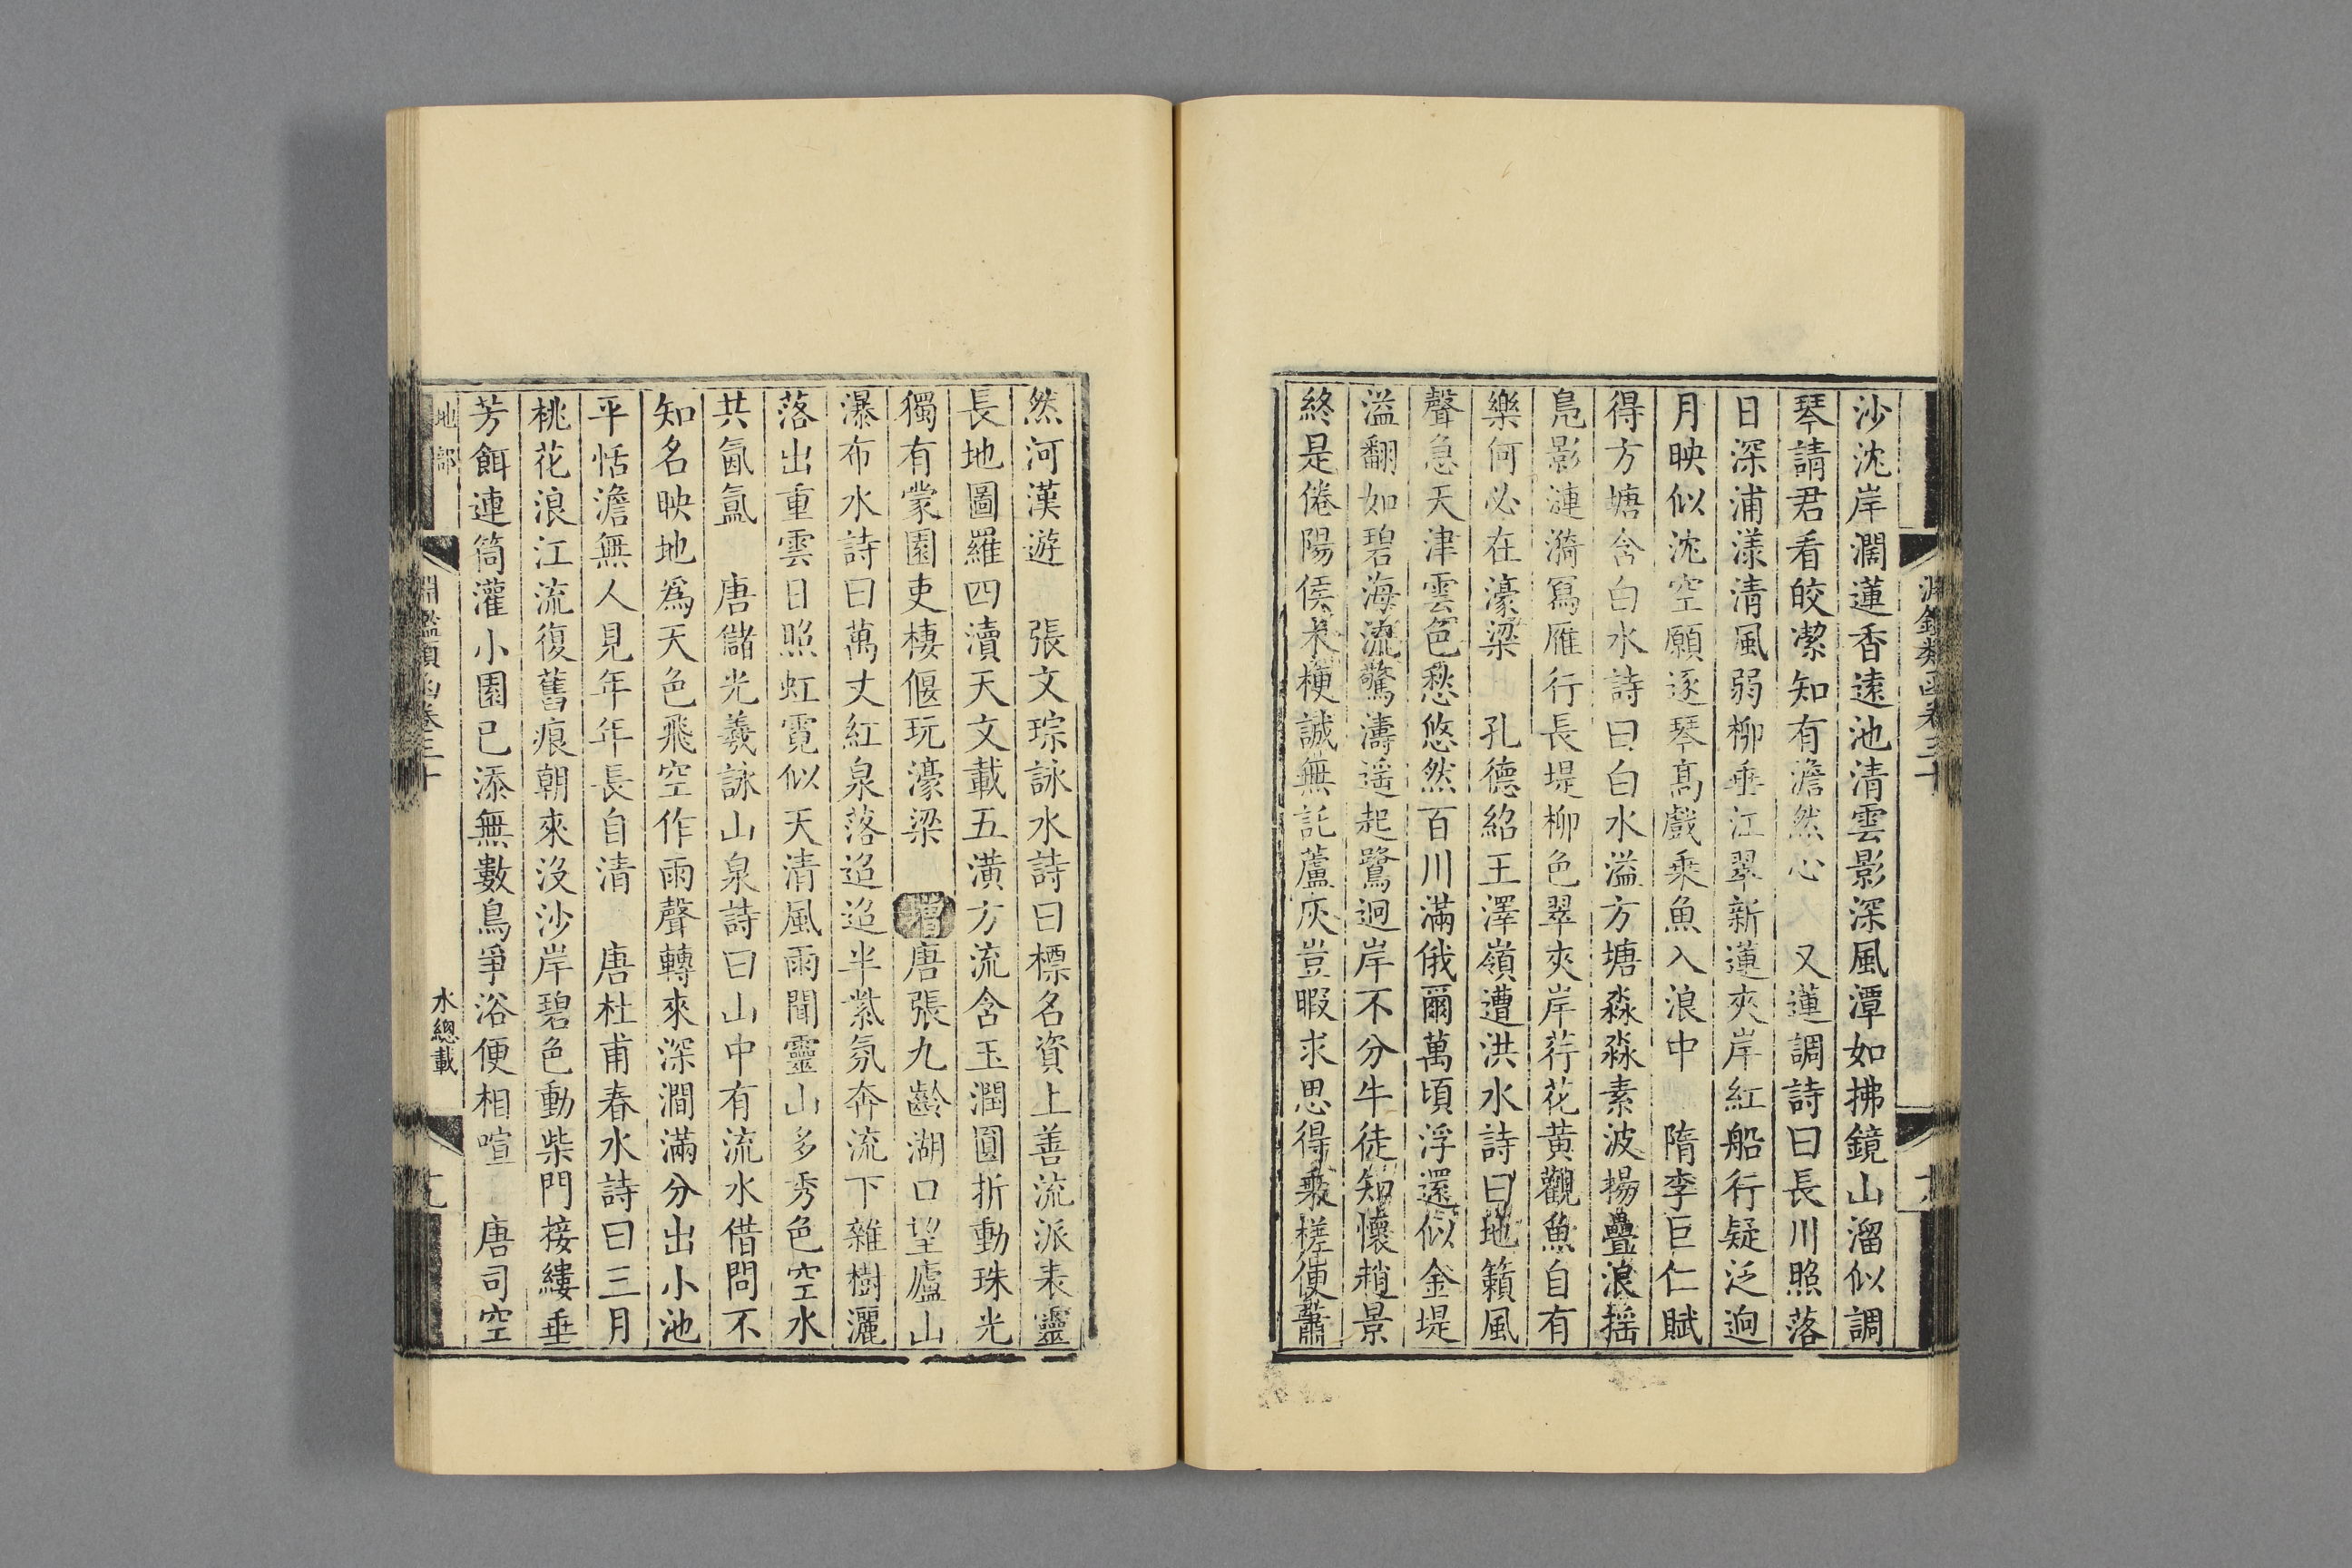 沙沈岸濶蓮香遠池清雲影深風潭如拂鏡山溜似調
琴請君看皎潔知有澹然心　又蓮調詩曰長川照落
日深浦漾清風弱柳垂江翠新蓮夾岸紅船行疑泛迥
月映似沈空願逐琴髙戲乗魚入浪中　隋李巨仁賦
得方塘含白水詩曰白水溢方塘淼淼素波揚疊浪摇
鳬影漣漪寫雁行長堤柳色翠夾岸荇花黄觀魚自有
樂何必在濠梁　孔德紹王澤嶺遭洪水詩曰地籟風
聲急天津雲色愁悠然百川滿俄爾萬頃浮還似金堤
溢翻如碧海流驚濤遥起鷺迥岸不分牛徒知懷趙景
終是倦陽侯木梗誠無託蘆灰豈暇求思得乘槎便蕭
然河漢遊　張文琮詠水詩曰標名資上善流派表靈
長地圖羅四瀆天文載五潢方流含玉潤圓折動珠光
獨有蒙園吏棲偃玩濠梁　增唐張九齡湖口望廬山
瀑布水詩曰萬丈紅泉落迢迢半紫氛奔流下雜樹灑
落出重雲日照虹霓似天清風雨聞靈山多秀色空水
共氤氳　唐儲光羲詠山泉詩曰山中有流水借問不
知名映地爲天色飛空作雨聲轉來深澗滿分出小池
平恬澹無人見年年長自清　唐杜甫春水詩曰三月
桃花浪江流復舊痕朝來沒沙岸碧色動柴門接縷垂
芳餌連筒灌小園已添無數鳥爭浴便相喧　唐司空
地部　淵鑑類函卷三十　水總載